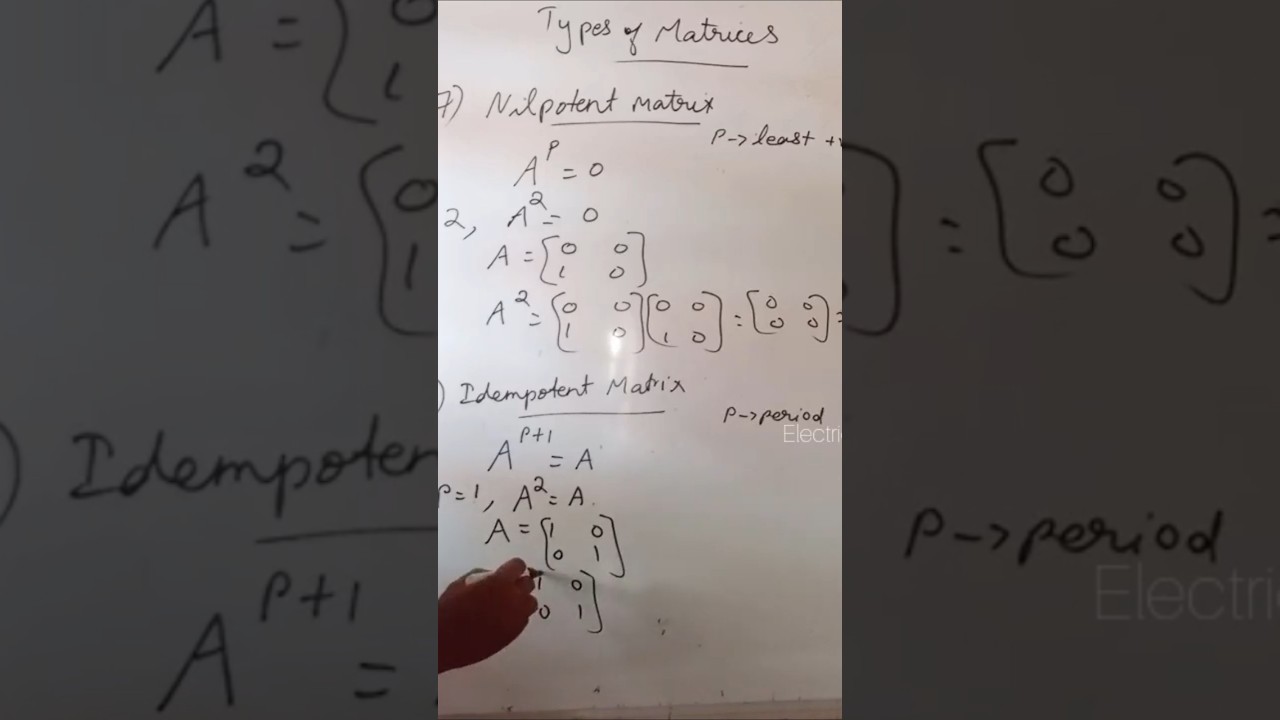 Types of Matrices
7) Nilpotent matrix
P->least +
A^P = 0
2, A^2 = 0
A = [0 0
1 0]
A^2 = [0 0 [0 0 = [0 0 =
1 0] 1 0] 0 0]
) Idempotent Matrix
P->period
Electri
A^P+1 = A
P=1, A^2 = A.
A = [1 0
0 1]
1 0
0 1]